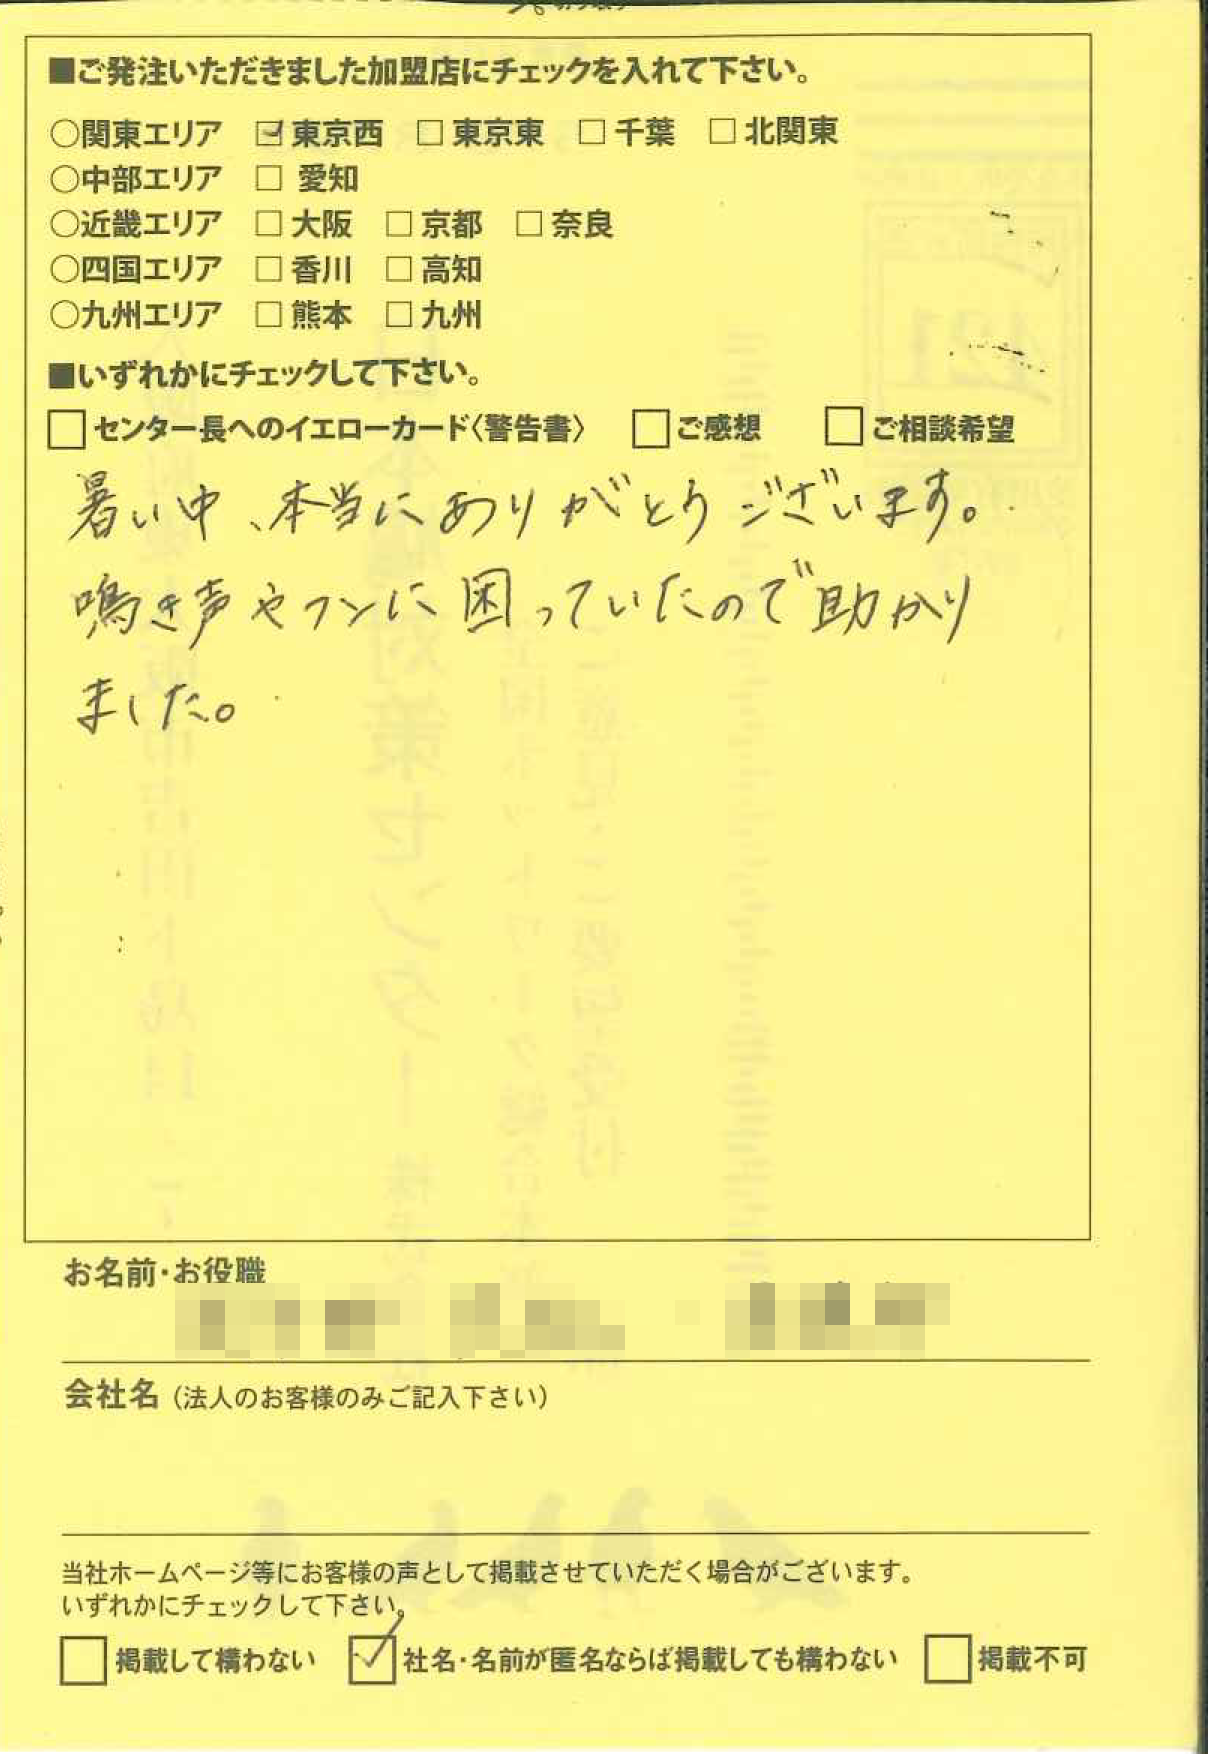 ■ご発注いただきました加盟店にチェックを入れて下さい。
○関東エリア ☑東京西 □東京東 □千葉 □北関東
○中部エリア □愛知
○近畿エリア □大阪 □京都 □奈良
○四国エリア □香川 □高知
○九州エリア □熊本 □九州
■いずれかにチェックして下さい。
□センター長へのイエローカード〈警告書〉 □ご感想 □ご相談希望
暑い中、本当にありがとうございます。
鳴き声やフンに困っていたので助かり
ました。
お名前・お役職
会社名（法人のお客様のみご記入下さい）
当社ホームページ等にお客様の声として掲載させていただく場合がございます。
いずれかにチェックして下さい。
□掲載して構わない ☑社名・名前が匿名ならば掲載しても構わない □掲載不可